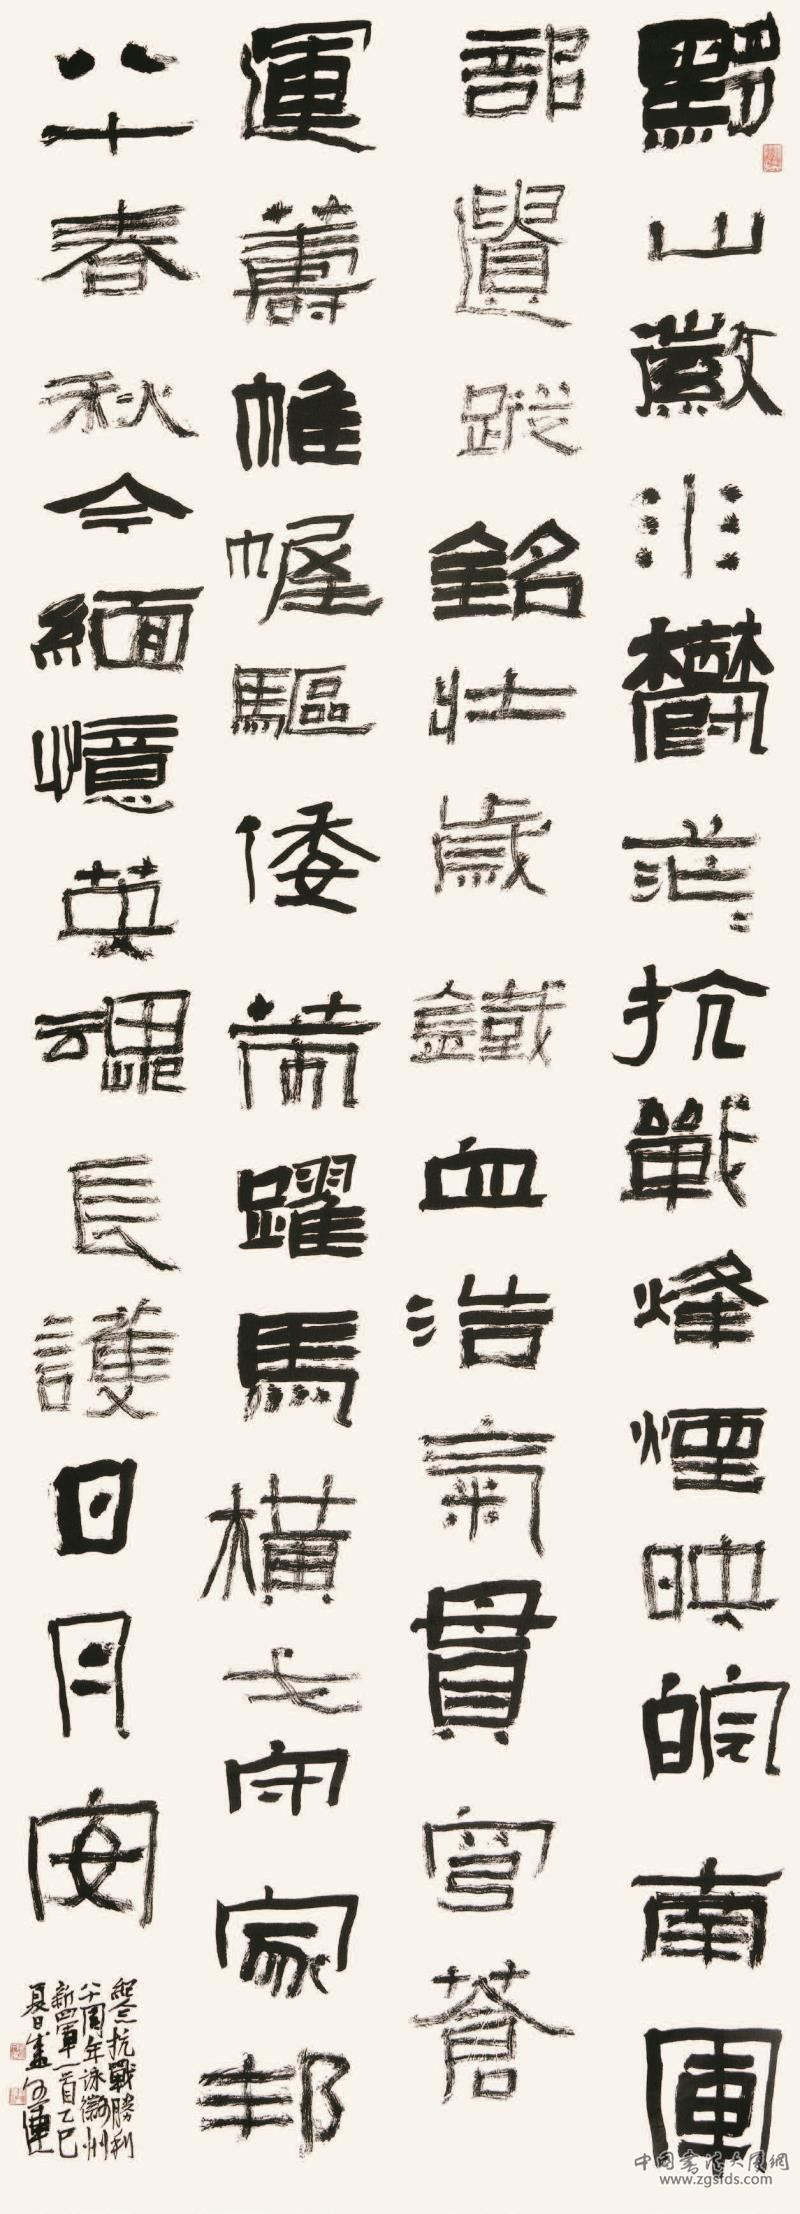 黟山徽水鬱茫〻抗戰烽煙映皖南軍
部遺蹤銘壯歲鐵血浩氣貫穹蒼
運籌帷幄驅倭躍馬橫戈守家邦
八十春秋今緬憶英魂長護日月安
紀念抗戰勝利
八十周年詠徽州
新四軍一首乙巳
夏日
www.zgsfds.com